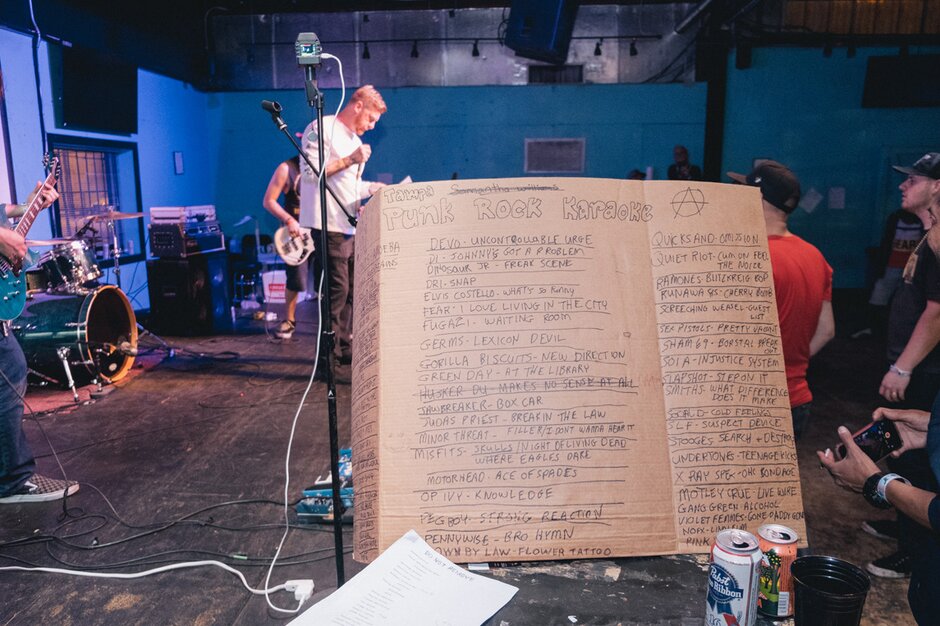 Tampa Samantha Williams
Punk Rock Karaoke
DEVO - UNCONTROLLABLE URGE
DI - JOHNNY'S GOT A PROBLEM
DINOSAUR JR - FREAK SCENE
DRI - SNAP
ELVIS COSTELLO - WHAT'S SO FUNNY
FEAR - I LOVE LIVING IN THE CITY
FUGAZI - WAITING ROOM
GERMS - LEXICON DEVIL
GORILLA BISCUITS - NEW DIRECTION
GREEN DAY - AT THE LIBRARY
HUSKER DU MAKES NO SENSE AT ALL
JAWBREAKER - BOX CAR
JUDAS PRIEST - BREAKIN THE LAW
MINOR THREAT - FILLER/I DONT WANNA HEAR IT
MISFITS - SKULLS/NIGHT OF LIVING DEAD
WHERE EAGLES DARE
MOTORHEAD - ACE OF SPADES
OP IVY - KNOWLEDGE
PEGBOY - STRONG REACTION
PENNYWISE - BRO HYMN
DOWN BY LAW - FLOWER TATTOO
QUICKSAND - OMISSION
QUIET RIOT - CUM ON FEEL
THE NOIZE
RAMONES BLITZKREIG BOP
RUNAWAYS - CHERRY BOMB
SCREECHING WEASEL - GUEST
LIST
SEX PISTOLS - PRETTY VACANT
SHAM 69 - BORSTAL BREAK
OUT
SOIA - INJUSTICE SYSTEM
SLAPSHOT - STEP ON IT
SMITHS WHAT DIFFERENCE
DOES IT MAKE
SOCIAL D - COLD FEELING
SLF - SUSPECT DEVICE
STOOGES SEARCH + DESTROY
UNDERTONES - TEENAGE KICKS
X RAY SPEX - OH BONDAGE
MOTLEY CRUE - LIVE WIRE
GANG GREEN - ALCOHOL
VIOLET FEMMES - GONE DADDY GONE
NOFX - LINOLEUM
PINK
DO NOT REMOVE
Pabst
Blue Ribbon